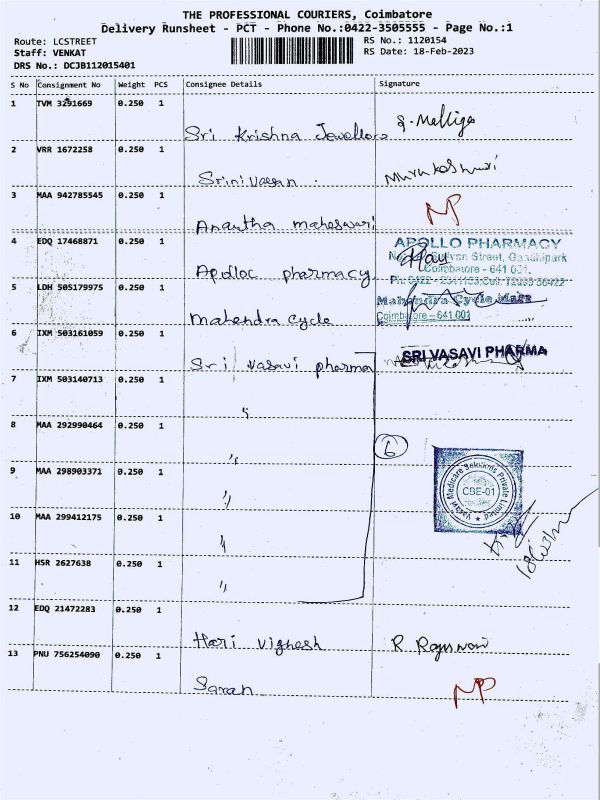 THE PROFESSIONAL COURIERS, Coimbatore
Delivery Runsheet - PCT - Phone No.:0422-3505555 - Page No.:1
Route: LCSTREET
RS No.: 1120154
Staff: VENKAT
RS Date: 18-Feb-2023
DRS No.: DCJB112015401
S No Consignment No Weight PCS Consignee Details Signature
1 TVM 3291669 0.250 1
Sri Krishna Jewellers
S. Melliga
2 VRR 1672258 0.250 1
Srinivasan
3 MAA 942785545 0.250 1
Anantha maheswari
NP
4 EDQ 17468871 0.250 1
Apolloc pharmacy
APOLLO PHARMACY
Street, Gandhipark
Coimbatore - 641 001.
5 LDH 505179975 0.250 1
Mahendra Cycle
Mahendra Cycle Mart
Coimbatore - 641 001
6 IXM 503161059 0.250 1
Sri Vasavi pharma
SRI VASAVI PHARMA
7 IXM 503140713 0.250 1
"
8 MAA 292990464 0.250 1
"
6
9 MAA 298903371 0.250 1
"
Vasavi Medicare Private Limited
CBE-01
10 MAA 299412175 0.250 1
"
11 HSR 2627638 0.250 1
"
12 EDQ 21472283 0.250 1
Hari Vighesh
R. Rajeswari
13 PNU 756254090 0.250 1
Saran
NP